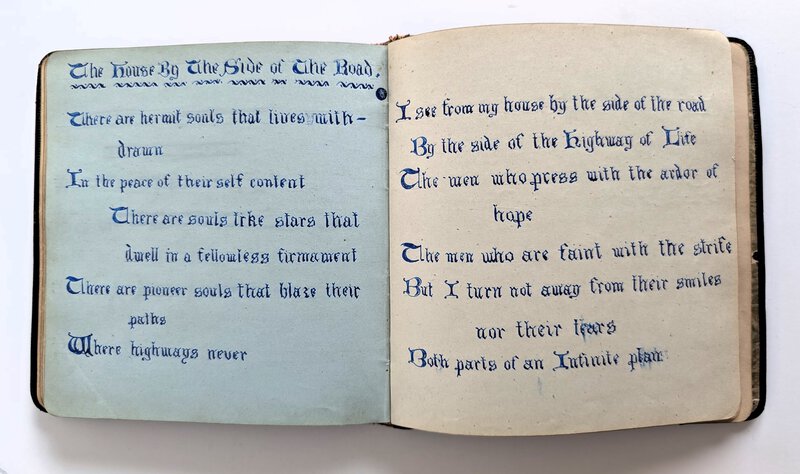 The House By The Side of The Road.
There are hermit souls that lives with-
drawn
In the peace of their self content
There are souls like stars that
dwell in a fellowless firmament
There are pioneer souls that blaze their
paths
Where highways never
I see from my house by the side of the road
By the side of the Highway of Life
The men who press with the ardor of
hope
The men who are faint with the strife
But I turn not away from their smiles
nor their tears
Both parts of an Infinite plan